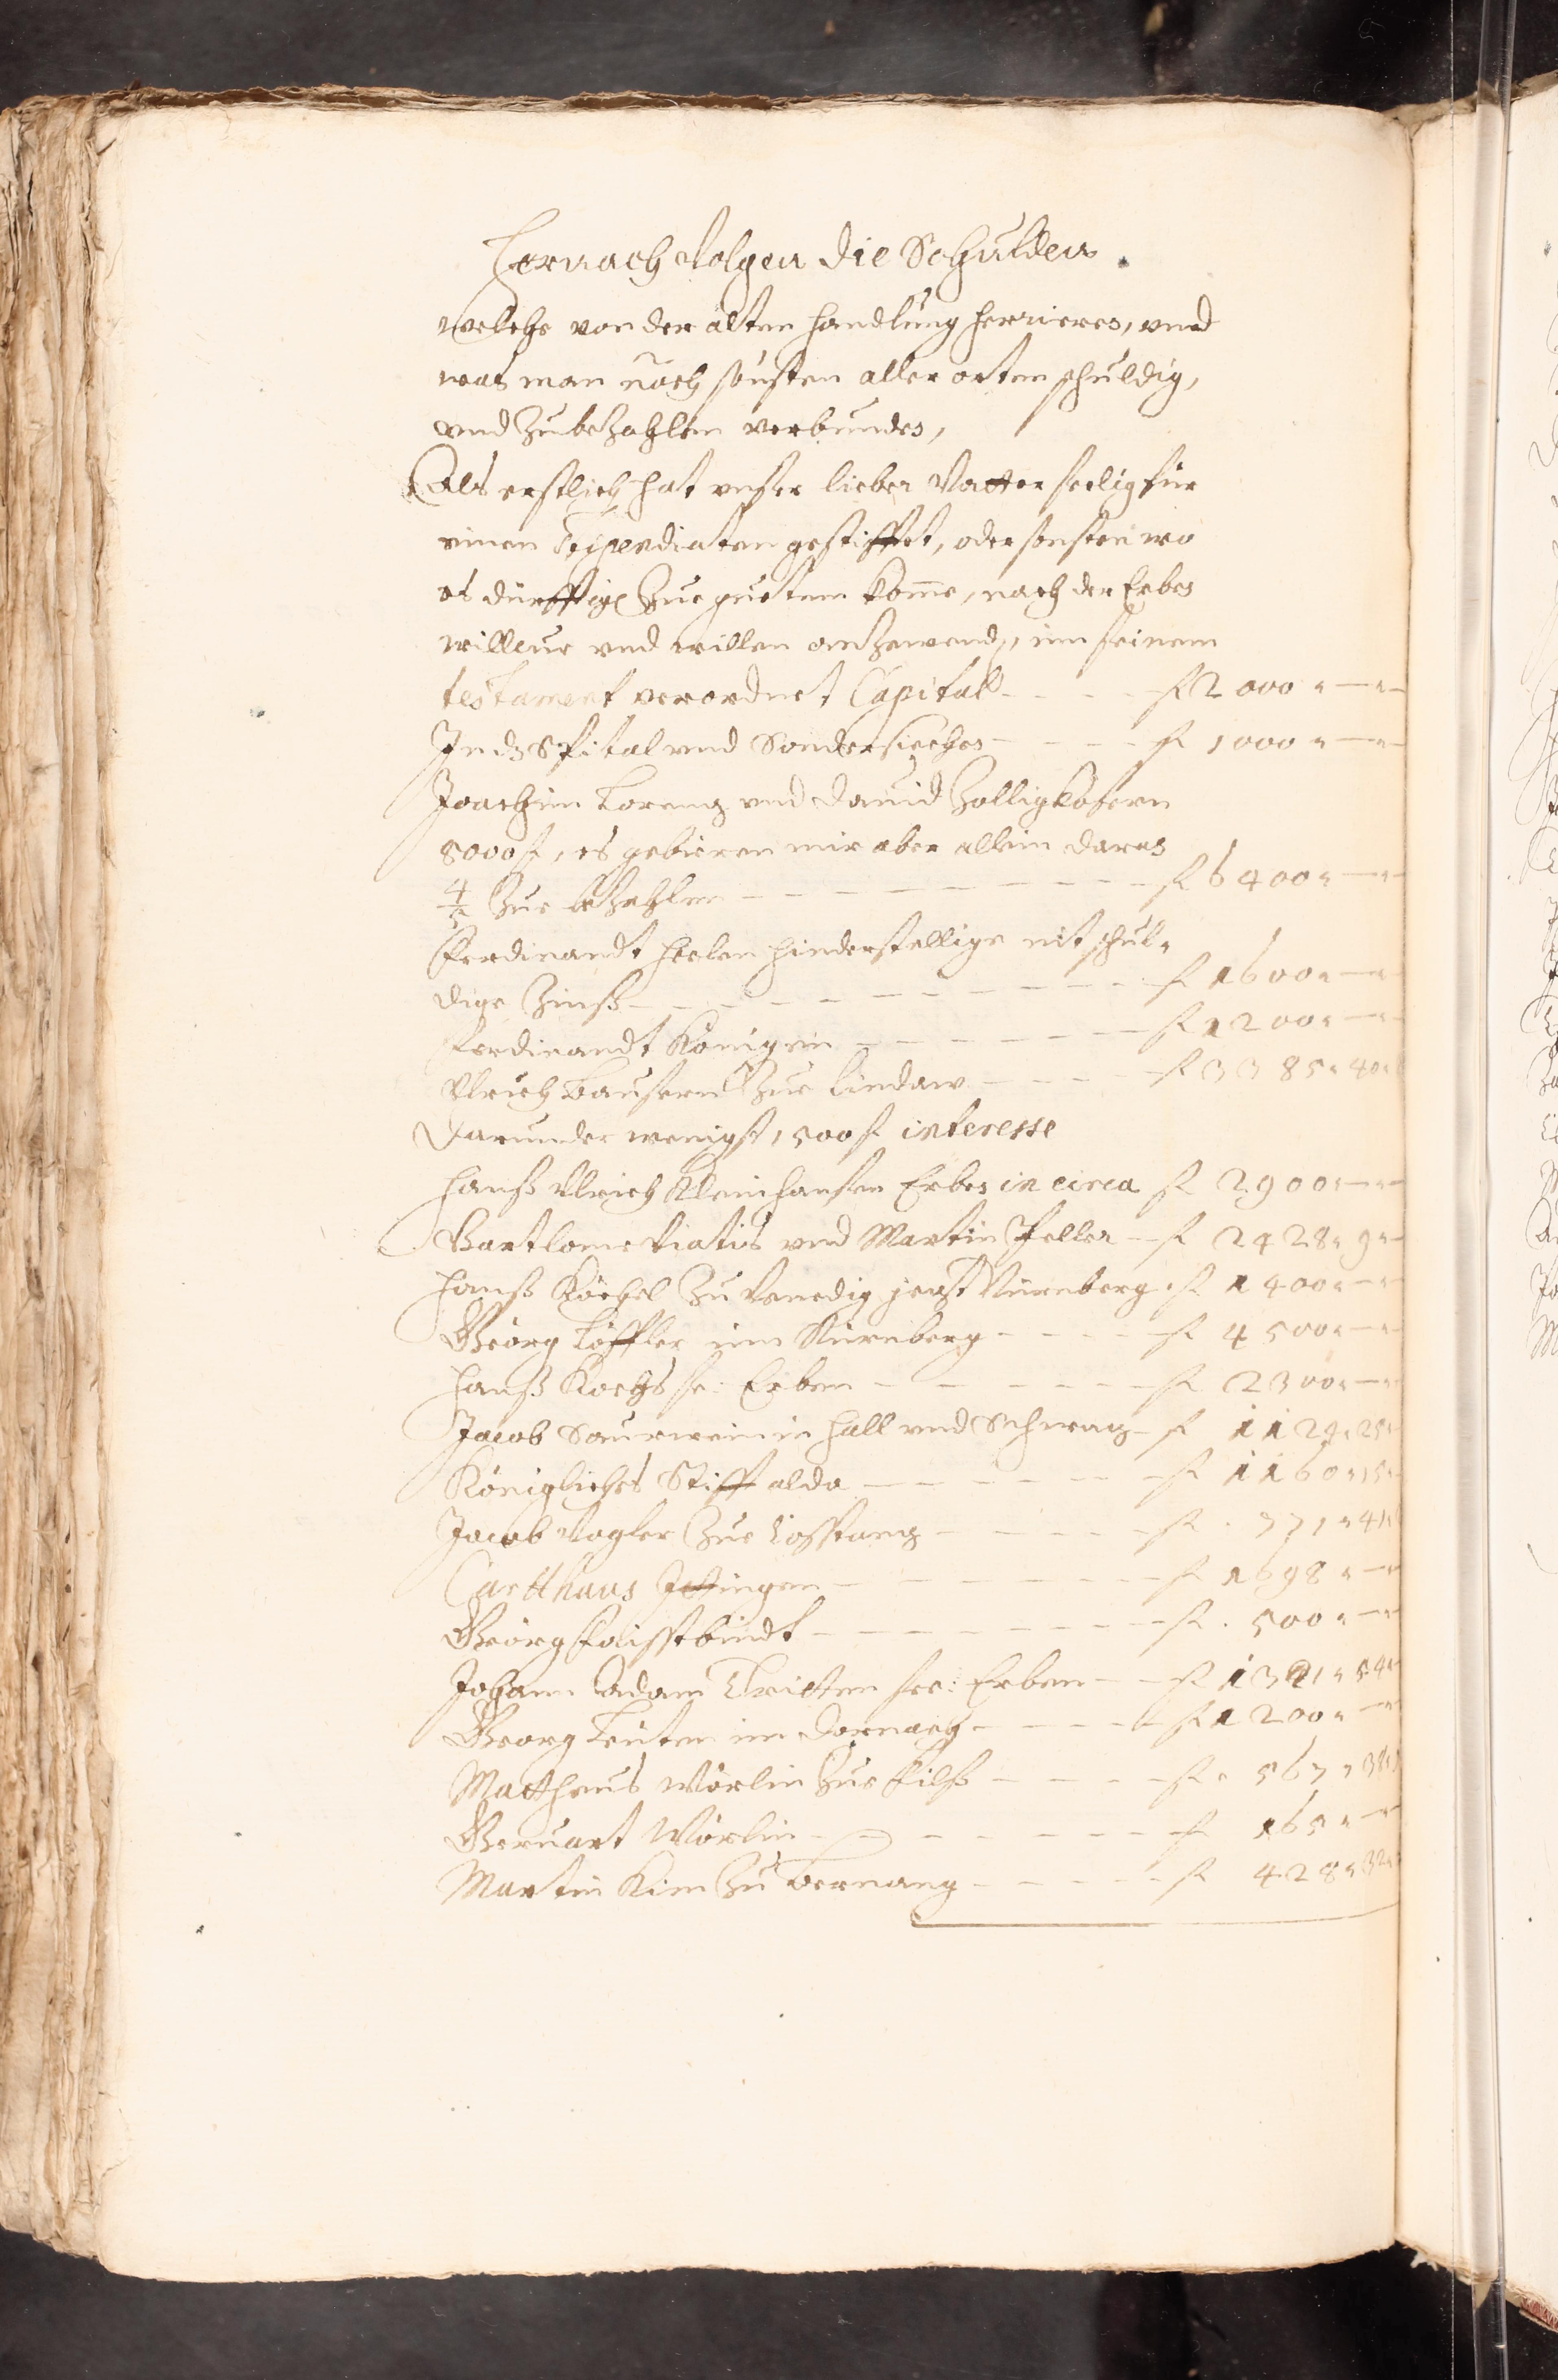 Hernach Volgen die Schulden.
welche von der alten Handlung herrieren, vnd
was man noch sonsten aller orten schuldig,
vnd zu bezahlen verbunden,
Als erstlich hat vnser lieber Vatter seelig für
einen Stipendiaten gestifftet, oder sonsten wo
es dürfftige zue guetem komme, nach der Erben
willeur vnd willen anzewend, inn seinem
testament verordnet Capital - - - - fl 2000 " — " —
In dz Spital vnd Sondersiechen - - - - fl 1000 " — " —
Joachim Lorenz vnd Dauid Zollig Kofern
8000 fl, es gebieren mir aber allein daran
4/5 zue bezahlen - - - - - - - - - fl 6400 " — " —
Ferdinandt Hielen hinderstellige nit schul-
dige Zinß - - - - - - - - - - - fl 1600 " — " —
Ferdinandt Königein - - - - - - - fl 1200 " — " —
Vlrich Bausern zue Lindaw - - - - fl 3385 " 40 "
Darunder wenigst, 500 fl interesse
Hanß Vlrich Kleinhansen Erben in circa fl 2900 " — " —
Bartlome Viatis vnd Martin Peller - fl 2428 " 9 " —
Hanß Köchel zu Venedig jezt Nürnberg . fl 1400 " — " —
Georg Löffler inn Nürnberg - - - - fl 4500 " — " —
Hanß Kochs se: Erben - - - - - - fl 2300 " — " —
Jacob Saurwein in Hall vnd Schwaz - fl 1124 " 25 "
Königliches Stifft alda - - - - - - fl 1160 " 15 "
Jacob Vogler zue Costanz - - - - - fl . 771 " 41 "
Cartthaus Ittingen - - - - - - - fl 1698 " — " —
Georg Faisstbindt - - - - - - - - fl . 500 " — " —
Johann Adam Tritten see: Erben - - fl 1321 " 54 "
Georg Leuten im Dornach - - - - - fl 1200 " — " —
Mattheus Wörlin zue Filß - - - - fl . 567 " 38 "
Geruart Wörlin - - - - - - - - fl 165 " — " —
Martin Kim zu Bernang - - - - - fl 428 " 32 "